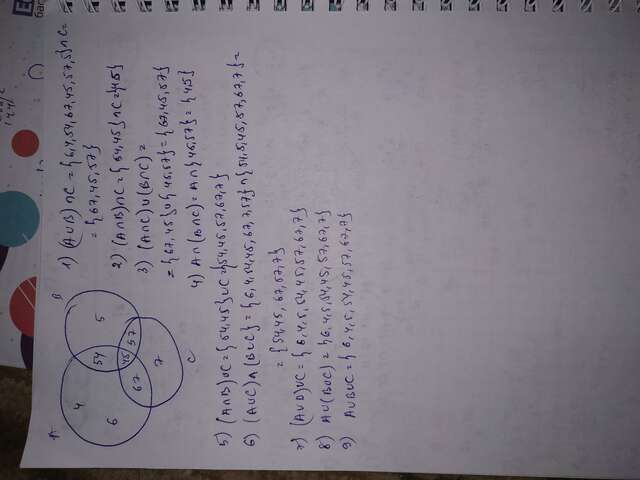 A
B
4
54
5
6
67
45
57
7
C
1) (A∪B)∩C = {6,4,54,67,45,57,5}∩C =
= {67,45,57}
2) (A∩B)∩C = {54,45}∩C = {45}
3) (A∩C)∪(B∩C) =
= {67,45}∪{45,57} = {67,45,57}
4) A∩(B∩C) = A∩{45,57} = {45}
5) (A∩B)∪C = {54,45}∪C = {54,45,57,67,7}
6) (A∪C)∧(B∪C) = {6,4,54,45,67,7,57}∩{54,5,45,57,67,7} =
= {54,45,67,57,7}
7) (A∪B)∪C = {6,4,5,54,45,57,67,7}
8) A∪(B∪C) = {6,4,5,54,45,57,67,7}
9) A∪B∪C = {6,4,5,54,45,57,67,7}